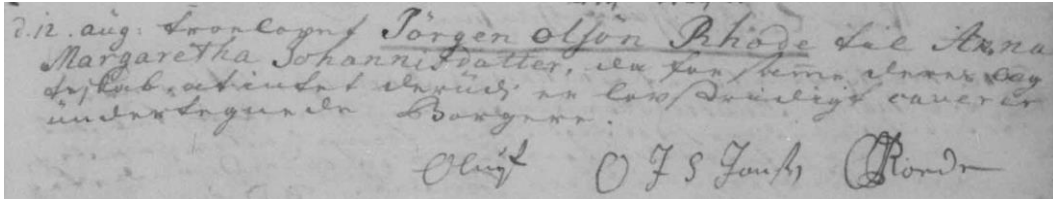 d. 12. aug: troelovet Jörgen olsön Rhode til Anna
Margaretha Johannisdatter, da for samme deres eegteskab, at intet derüdi er lovstridigt caverer
ündertegnede Borgere.
Oluf O J S Jonsen Roede